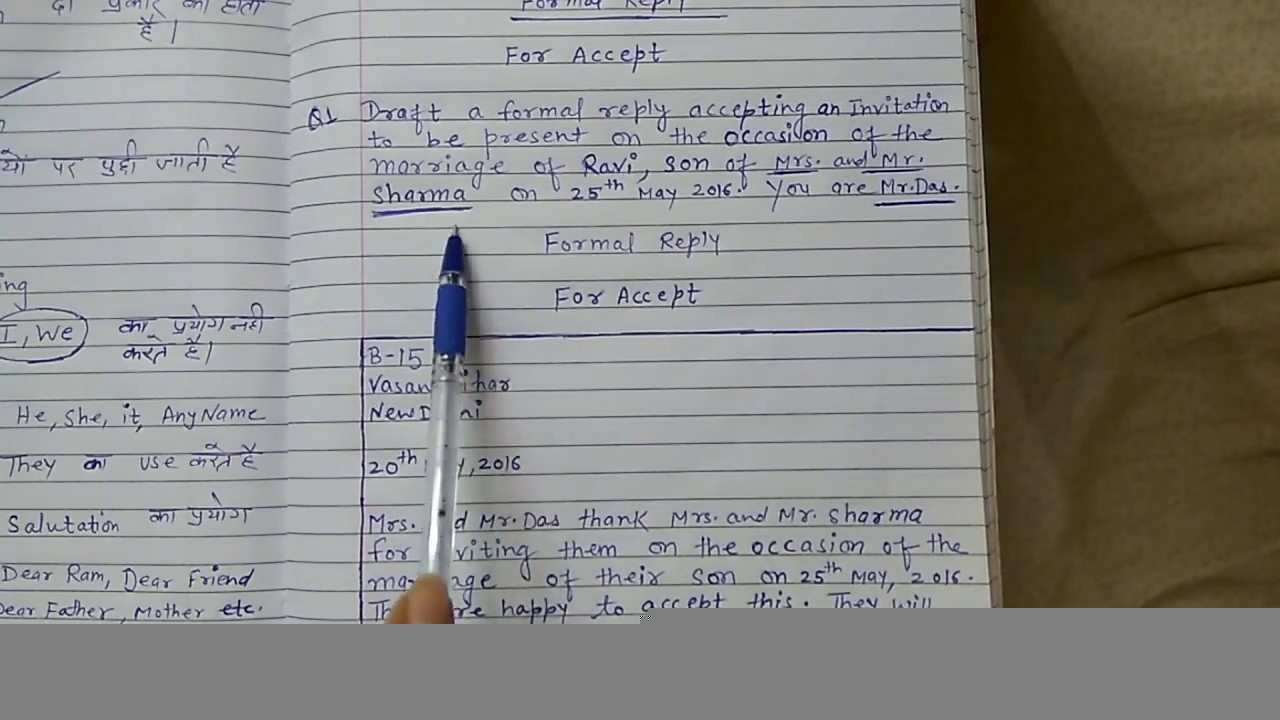 दो प्रकार का होता
है।
यो पर पुछी जाती है
ing
I, We का प्रयोग नही
करते है।
He, She, it, Any Name
They का use करते है
Salutation का प्रयोग
Dear Ram, Dear Friend
Dear Father, Mother etc.
Formal Reply
For Accept
Q1 Draft a formal reply accepting an Invitation
to be present on the occasion of the
marriage of Ravi, son of Mrs. and Mr.
Sharma on 25th May 2016. You are Mr.Das.
Formal Reply
For Accept
B-15
Vasan ihar
New D i
20th y, 2016
Mrs. d Mr. Das thank Mrs. and Mr. Sharma
for viting them on the occasion of the
ma age of their son on 25th May, 2016.
Th re happy to accept this. They will